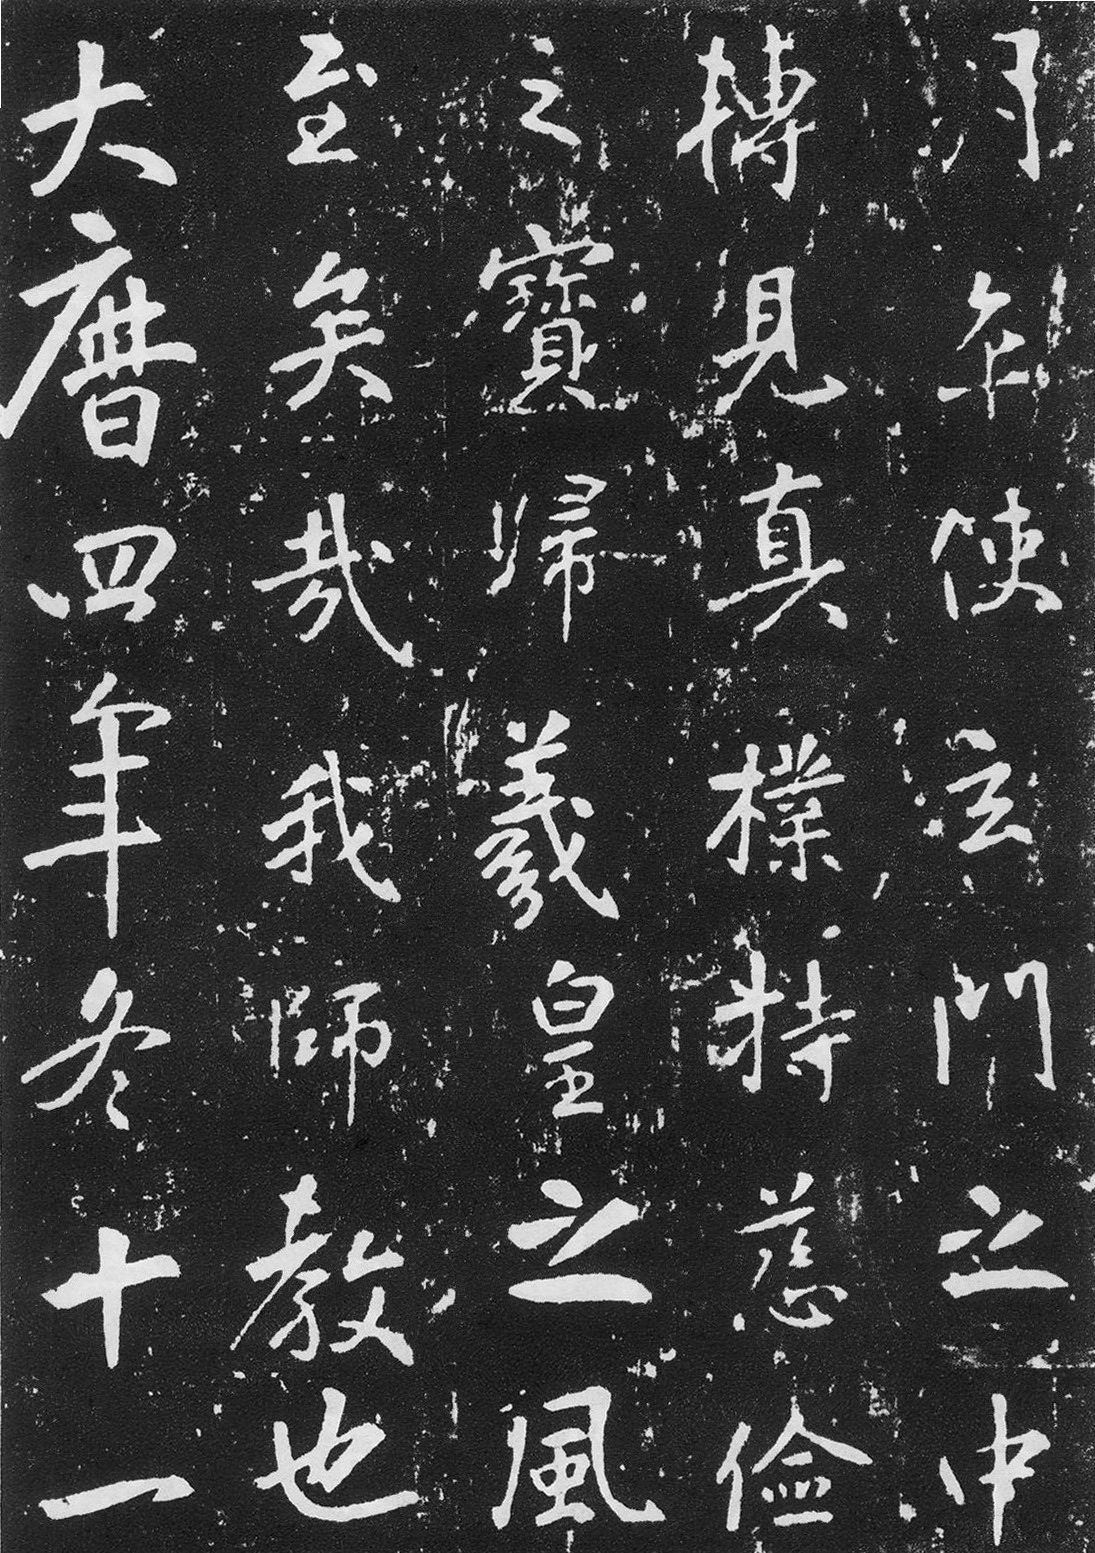 月卒使玄門之中
搏見真樸持慈儉
之寶歸羲皇之風
至矣哉我師教也
大曆四年冬十一